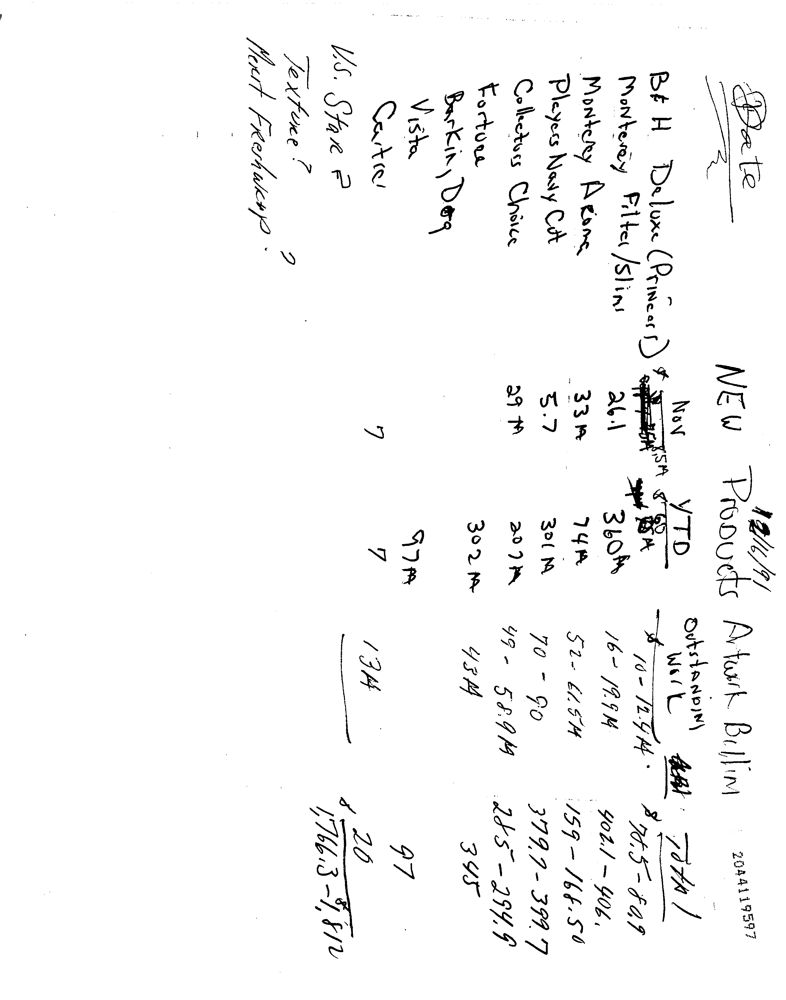 Date
NEW Products Artwork Billim
12/6/91
2044119597
Nov YTD Outstanding Work Total
B&H Deluxe (Princess) 8.5M $60M $10-12.4M. $78.5-80.9
Monterey Filter/Slims 26.1 360M 16-19.9M 402.1-406.
Monterey Aroma 33M 74M 52-61.5M 159-168.50
Players Navy Cut 5.7 301M 70-90 379.7-399.7
Collectors Choice 29M 207M 49-58.9M 285-294.9
Fortune 302M 43M 345
Barkin, Dog
Vista 97M 97
Cartier 7 7 13M $20
$1,766.3-1,812
V.S. Star ?
Texture ?
Merit ?